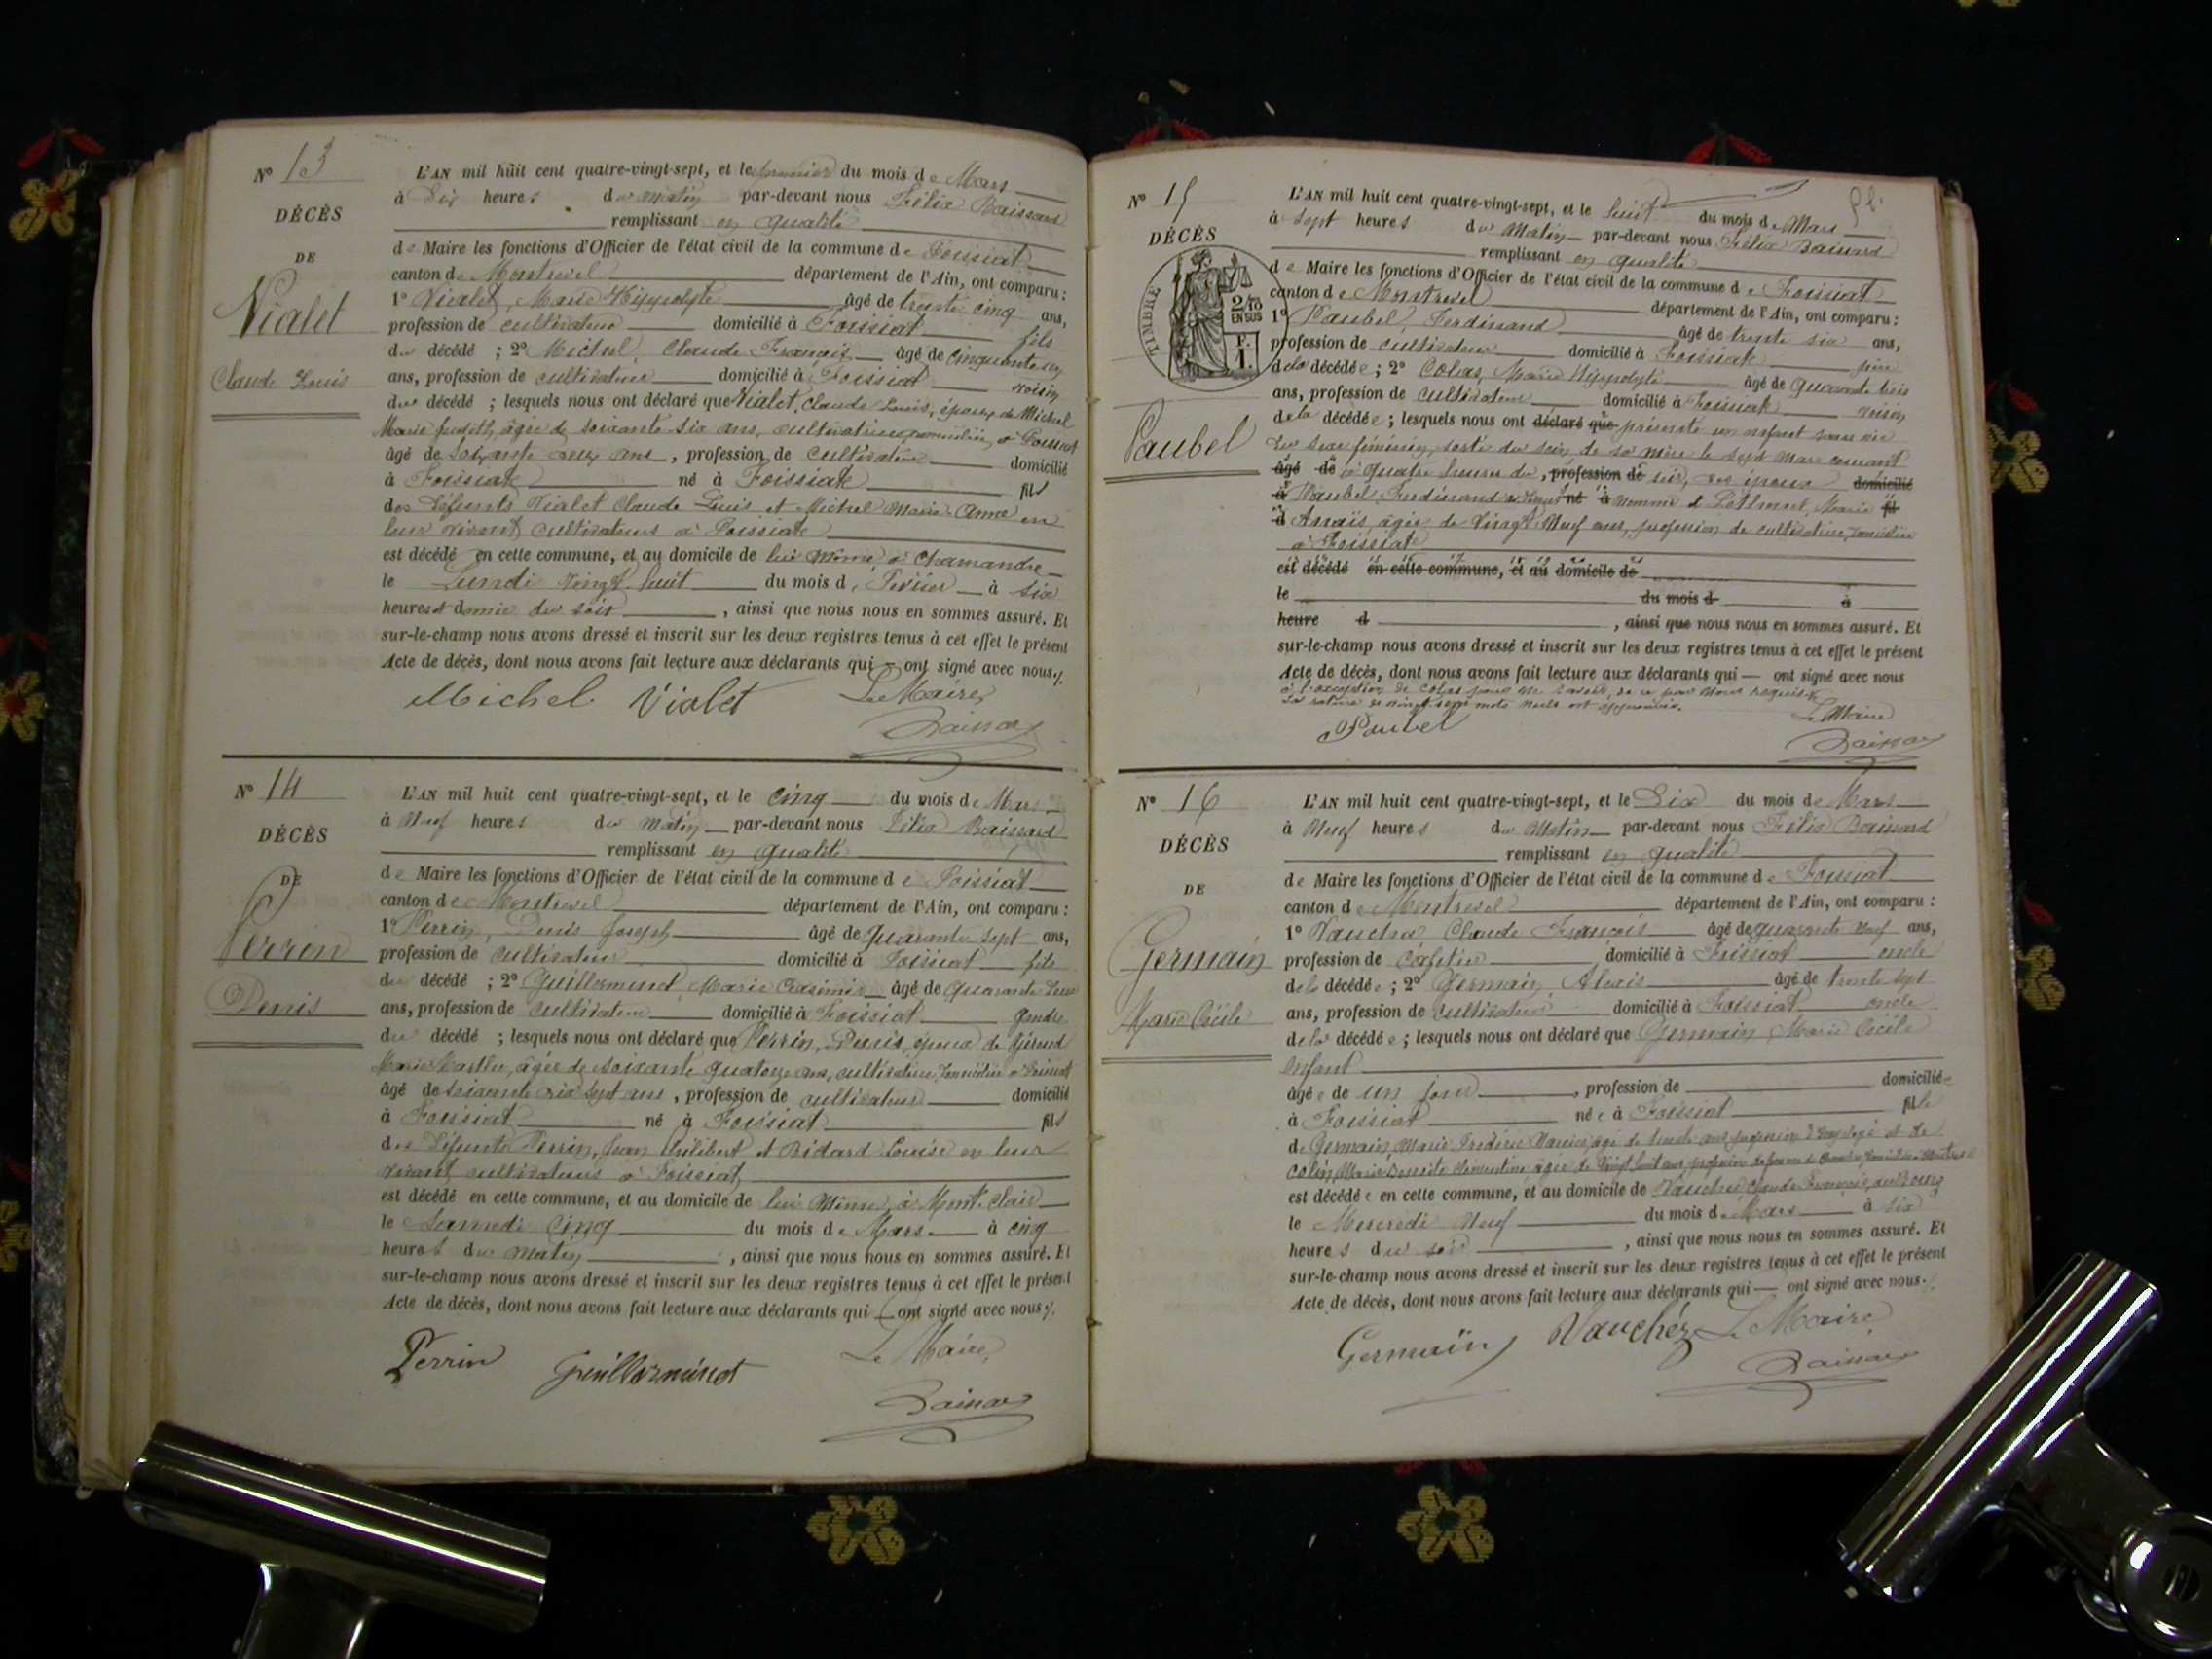 N° 13
DÉCÈS
DE
Vialet
Claude Louis
L'AN mil huit cent quatre-vingt-sept, et le premier du mois de Mars
à Dix heures du matin par-devant nous Félix Baissard
remplissant en qualité
de Maire les fonctions d'Officier de l'état civil de la commune de Foissiat
canton de Montrevel département de l'Ain, ont comparu :
1° Vialet, Marie Hippolyte âgé de trente cinq ans,
profession de cultivateur domicilié à Foissiat fils
du décédé ; 2° Michel, Claude François âgé de cinquante un
ans, profession de cultivateur domicilié à Foissiat voisin
du décédé ; lesquels nous ont déclaré que Vialet, Claude Louis, époux de Michel
Marie Judith, âgée de soixante six ans, cultivatrice, domiciliée à Foissiat
âgé de soixante deux ans, profession de cultivateur domicilié
à Foissiat né à Foissiat fils
des Défunts Vialet Claude Louis et Michel Marie-Anne en
leur vivant cultivateurs à Foissiat
est décédé en cette commune, et au domicile de lui même, à Chamandre
le Lundi vingt huit du mois de Février à six
heures et demie du soir, ainsi que nous nous en sommes assuré. Et
sur-le-champ nous avons dressé et inscrit sur les deux registres tenus à cet effet le présent
Acte de décès, dont nous avons fait lecture aux déclarants qui ont signé avec nous
Michel Vialet Le Maire
Baissard
N° 14
DÉCÈS
DE
Perrin
Denis
L'AN mil huit cent quatre-vingt-sept, et le cinq du mois de Mars
à Neuf heures du matin par-devant nous Félix Baissard
remplissant en qualité
de Maire les fonctions d'Officier de l'état civil de la commune de Foissiat
canton de Montrevel département de l'Ain, ont comparu :
1° Perrin, Denis Joseph âgé de quarante sept ans,
profession de cultivateur domicilié à Foissiat fils
du décédé ; 2° Guillerminet, Marie Casimir âgé de quarante deux
ans, profession de cultivateur domicilié à Foissiat gendre
du décédé ; lesquels nous ont déclaré que Perrin, Denis, époux de Giroud
Marie Marthe, âgée de soixante quatorze ans, cultivatrice, domiciliée à Foissiat
âgé de soixante dix sept ans, profession de cultivateur domicilié
à Foissiat né à Foissiat fils
des Défunts Perrin, Jean Philibert et Bidard Louise en leur
vivant cultivateurs à Foissiat
est décédé en cette commune, et au domicile de lui Même, à Mont-Clair
le Samedi Cinq du mois de Mars à cinq
heures du matin, ainsi que nous nous en sommes assuré. Et
sur-le-champ nous avons dressé et inscrit sur les deux registres tenus à cet effet le présent
Acte de décès, dont nous avons fait lecture aux déclarants qui ont signé avec nous
Perrin Guillerminet Le Maire,
Baissard
N° 15
DÉCÈS
TIMBRE
2/10
EN SUS
F.
1.
Paubel
L'AN mil huit cent quatre-vingt-sept, et le huit du mois de Mars
à Sept heures du Matin par-devant nous Félix Baissard
remplissant en qualité
de Maire les fonctions d'Officier de l'état civil de la commune de Foissiat
canton de Montrevel département de l'Ain, ont comparu :
1° Paubel, Ferdinand âgé de trente six ans,
profession de cultivateur domicilié à Foissiat père
de la décédée ; 2° Colas, Marie Hippolyte âgé de quarante trois
ans, profession de cultivateur domicilié à Foissiat voisin
de la décédée ; lesquels nous ont déclaré que présenté un enfant sans vie
du sexe féminin, sorti du sein de sa mère le sept mars courant
âgé de à quatre heures du, profession de soir, des époux domicilié
à Paubel, Ferdinand né à et fil
d Anaïs, âgée de vingt Neuf ans, profession de cultivatrice, domiciliée
à Foissiat
est décédé en cette commune, et au domicile de
le du mois d à
heure d, ainsi que nous nous en sommes assuré. Et
sur-le-champ nous avons dressé et inscrit sur les deux registres tenus à cet effet le présent
Acte de décès, dont nous avons fait lecture aux déclarants qui ont signé avec nous
à l'exception de Colas pour ne savoir, de ce par nous requis
La rature de vingt sept mots nuls est approuvée.
Paubel Le Maire
Baissard
N° 16
DÉCÈS
DE
Germain
Marie Cécile
L'AN mil huit cent quatre-vingt-sept, et le Dix du mois de Mars
à Neuf heures du Matin par-devant nous Félix Baissard
remplissant en qualité
de Maire les fonctions d'Officier de l'état civil de la commune de Foissiat
canton de Montrevel département de l'Ain, ont comparu :
1° Vauchez Claude François âgé de quarante neuf ans,
profession de cafetier domicilié à Foissiat oncle
de la décédée ; 2° Germain Alexis âgé de trente sept
ans, profession de cultivateur domicilié à Foissiat oncle
de la décédée ; lesquels nous ont déclaré que Germain, Marie Cécile
enfant
âgée de un jour, profession de domiciliée
à Foissiat née à Foissiat fille
de Germain, Marie Frédéric âgé de trente ans profession d'employé et de
Colin, Marie Benoite Clémentine âgée de vingt huit ans, profession de femme de chambre
est décédée en cette commune, et au domicile de Vauchez, Claude François, au Bourg
le Mercredi Neuf du mois de Mars à six
heures du soir, ainsi que nous nous en sommes assuré. Et
sur-le-champ nous avons dressé et inscrit sur les deux registres tenus à cet effet le présent
Acte de décès, dont nous avons fait lecture aux déclarants qui ont signé avec nous
Germain Vauchez Le Maire
Baissard